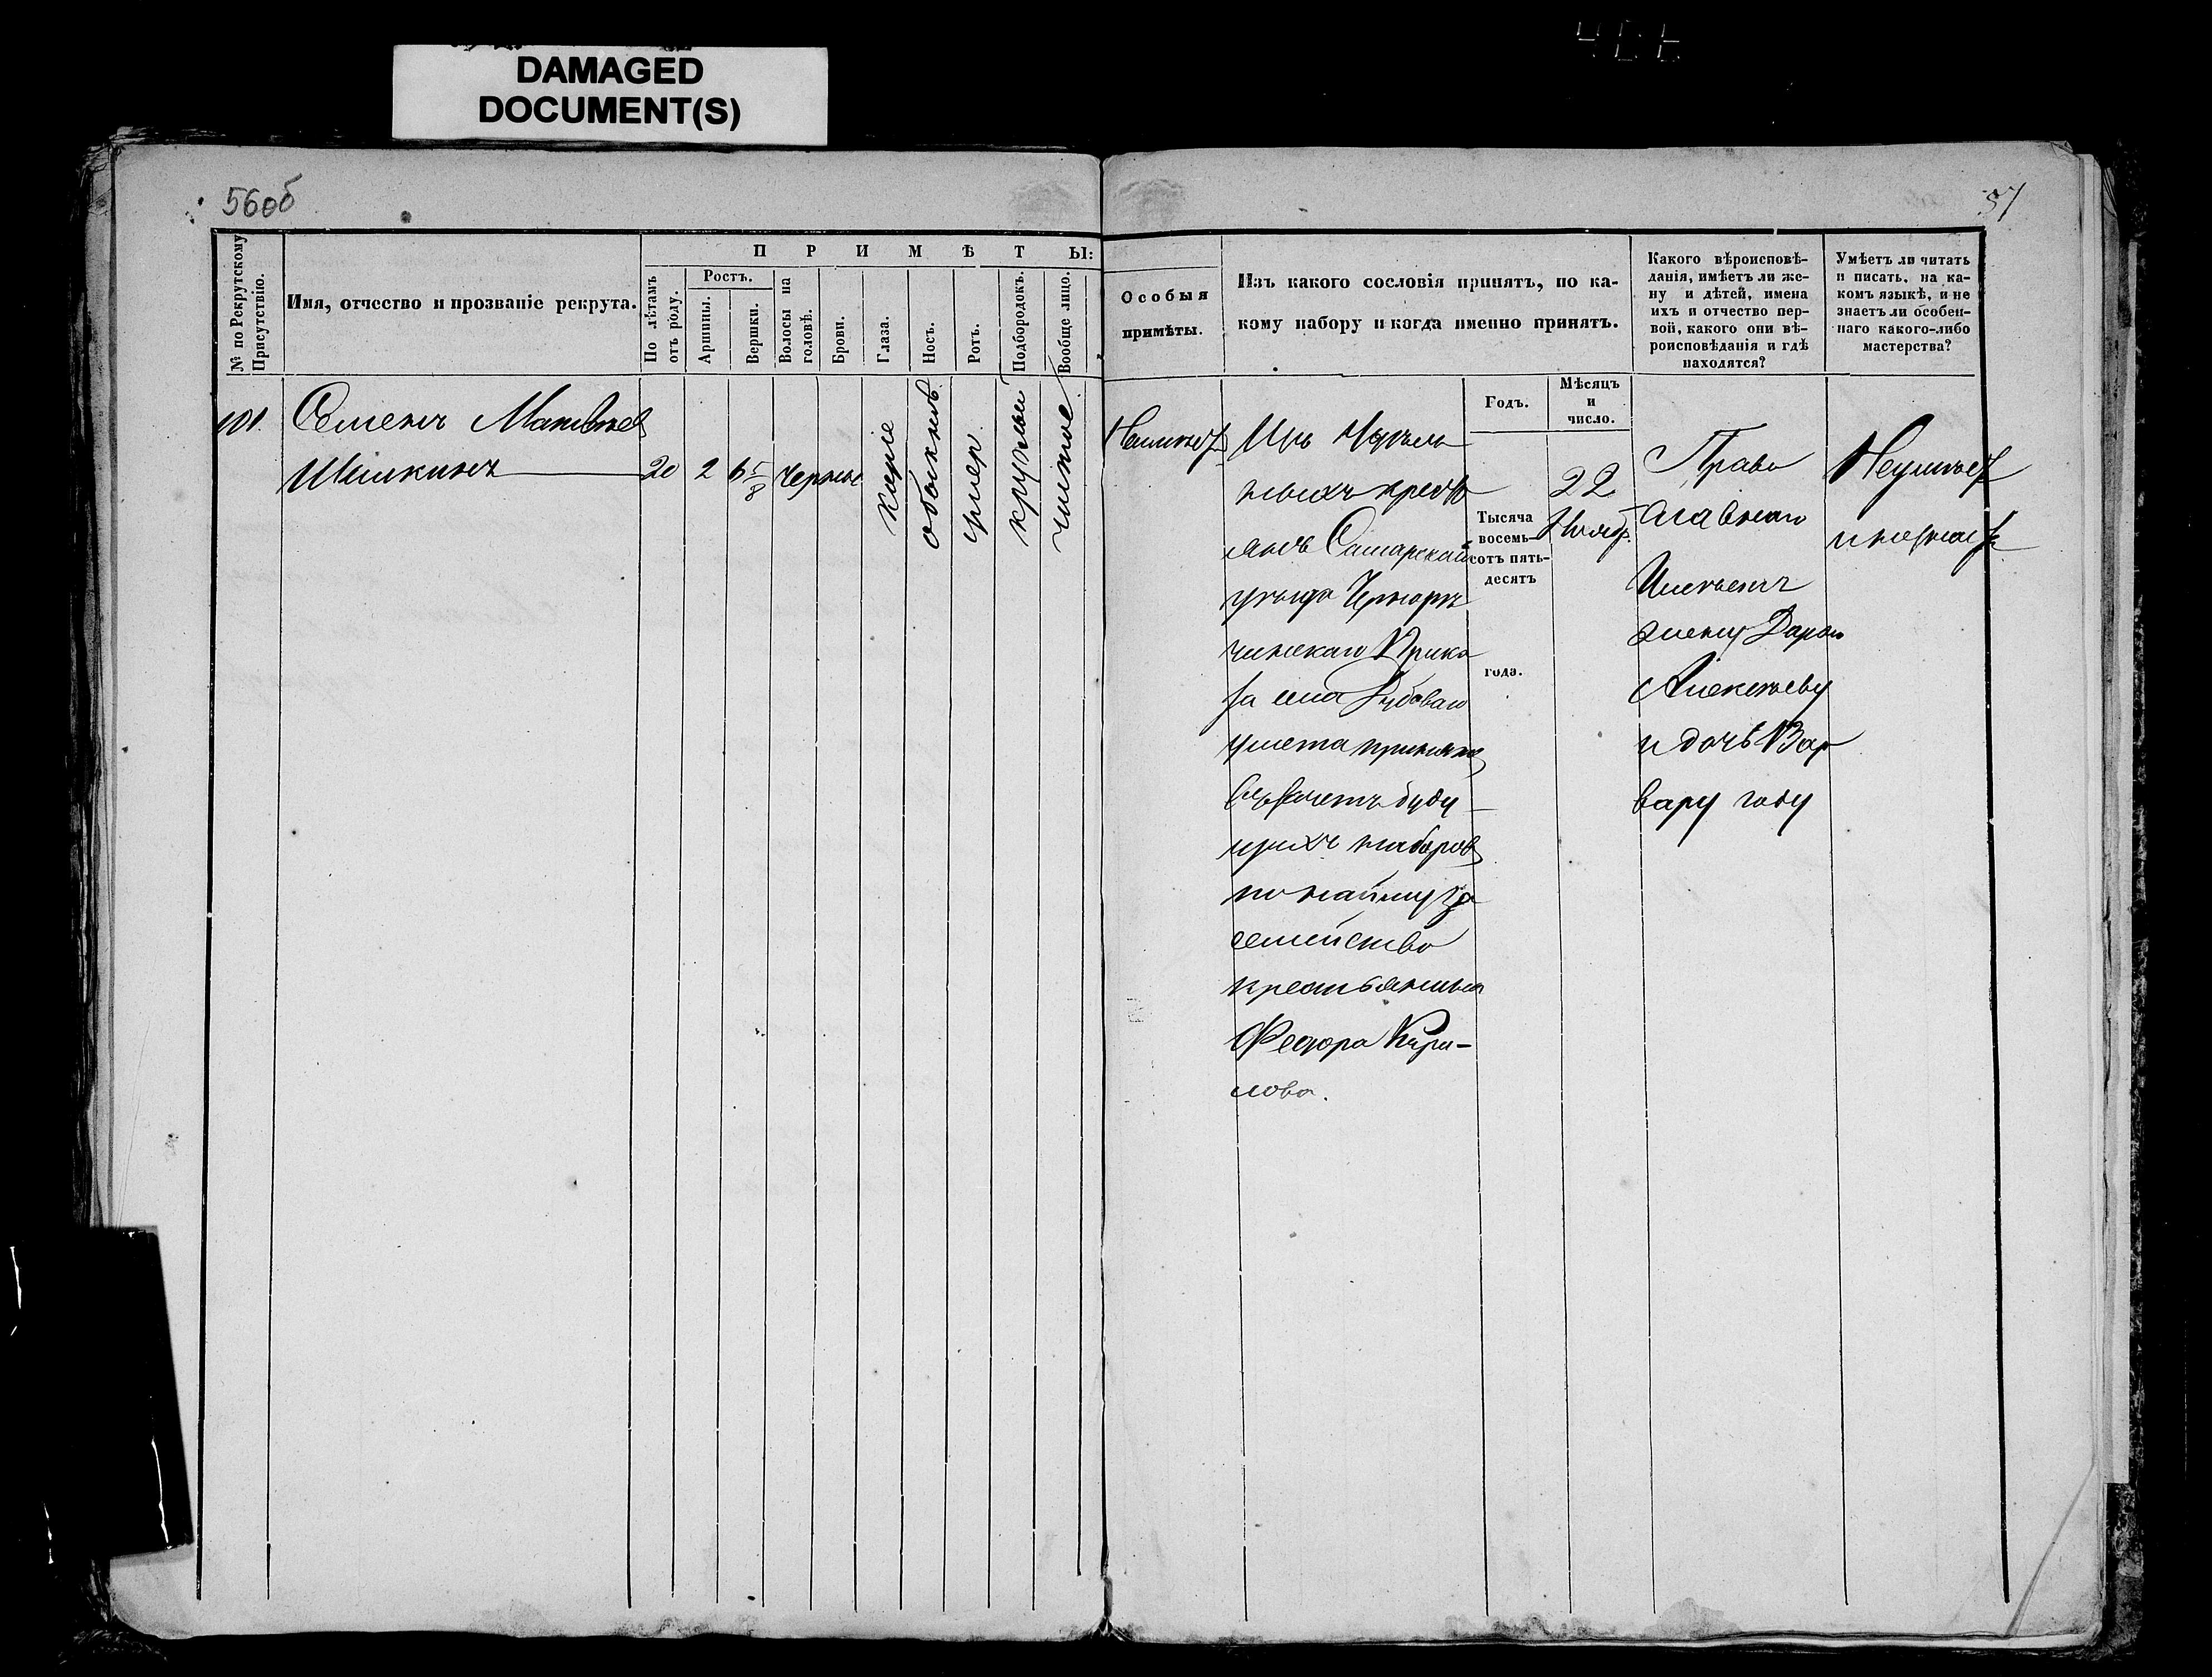 DAMAGED
DOCUMENT(S)
56об
57
№ по Рекрутскому
Присутствію.
Имя, отчество и прозваніе рекрута.
ПРИМѢТЫ:
По лѣтамъ
отъ роду.
Ростъ.
Аршины.
Вершки.
Волосы на
головѣ.
Брови.
Глаза.
Носъ.
Ротъ.
Подбородокъ.
Вообще лицо.
Особыя
примѣты.
Изъ какого сословія принятъ, по ка-
кому набору и когда именно принятъ.
Годъ.
Мѣсяцъ
и
число.
Какого вѣроисповѣ-
данія, имѣетъ ли же-
ну и дѣтей, имена
ихъ и отчество пер-
вой, какого они вѣ-
роисповѣданія и гдѣ
находятся?
Умѣетъ ли читать
и писать, на ка-
комъ языкѣ, и не
знаетъ ли особен-
наго какого-либо
мастерства?
101.
Семенъ Матвѣев
Шишкинъ
20
2
6 5/8
Черные
каріе
обыкнов.
умер.
круглый
чистое.
Изъ Удѣль
ныхъ кресть
янъ Самарскаго
уѣзда
Прика
за села Дубоваго
умета принятъ
въ зачетъ буду
щихъ наборовъ
по найму за
семейство
крестьянина
Федора Кири-
лова.
Тысяча
восемь-
сотъ пять-
десятъ
года.
22
Ноябр.
Право
славнаго
Имѣетъ
жену Дарью
Алексѣеву
и дочь Вар
вару году
Неумѣет
и незнает